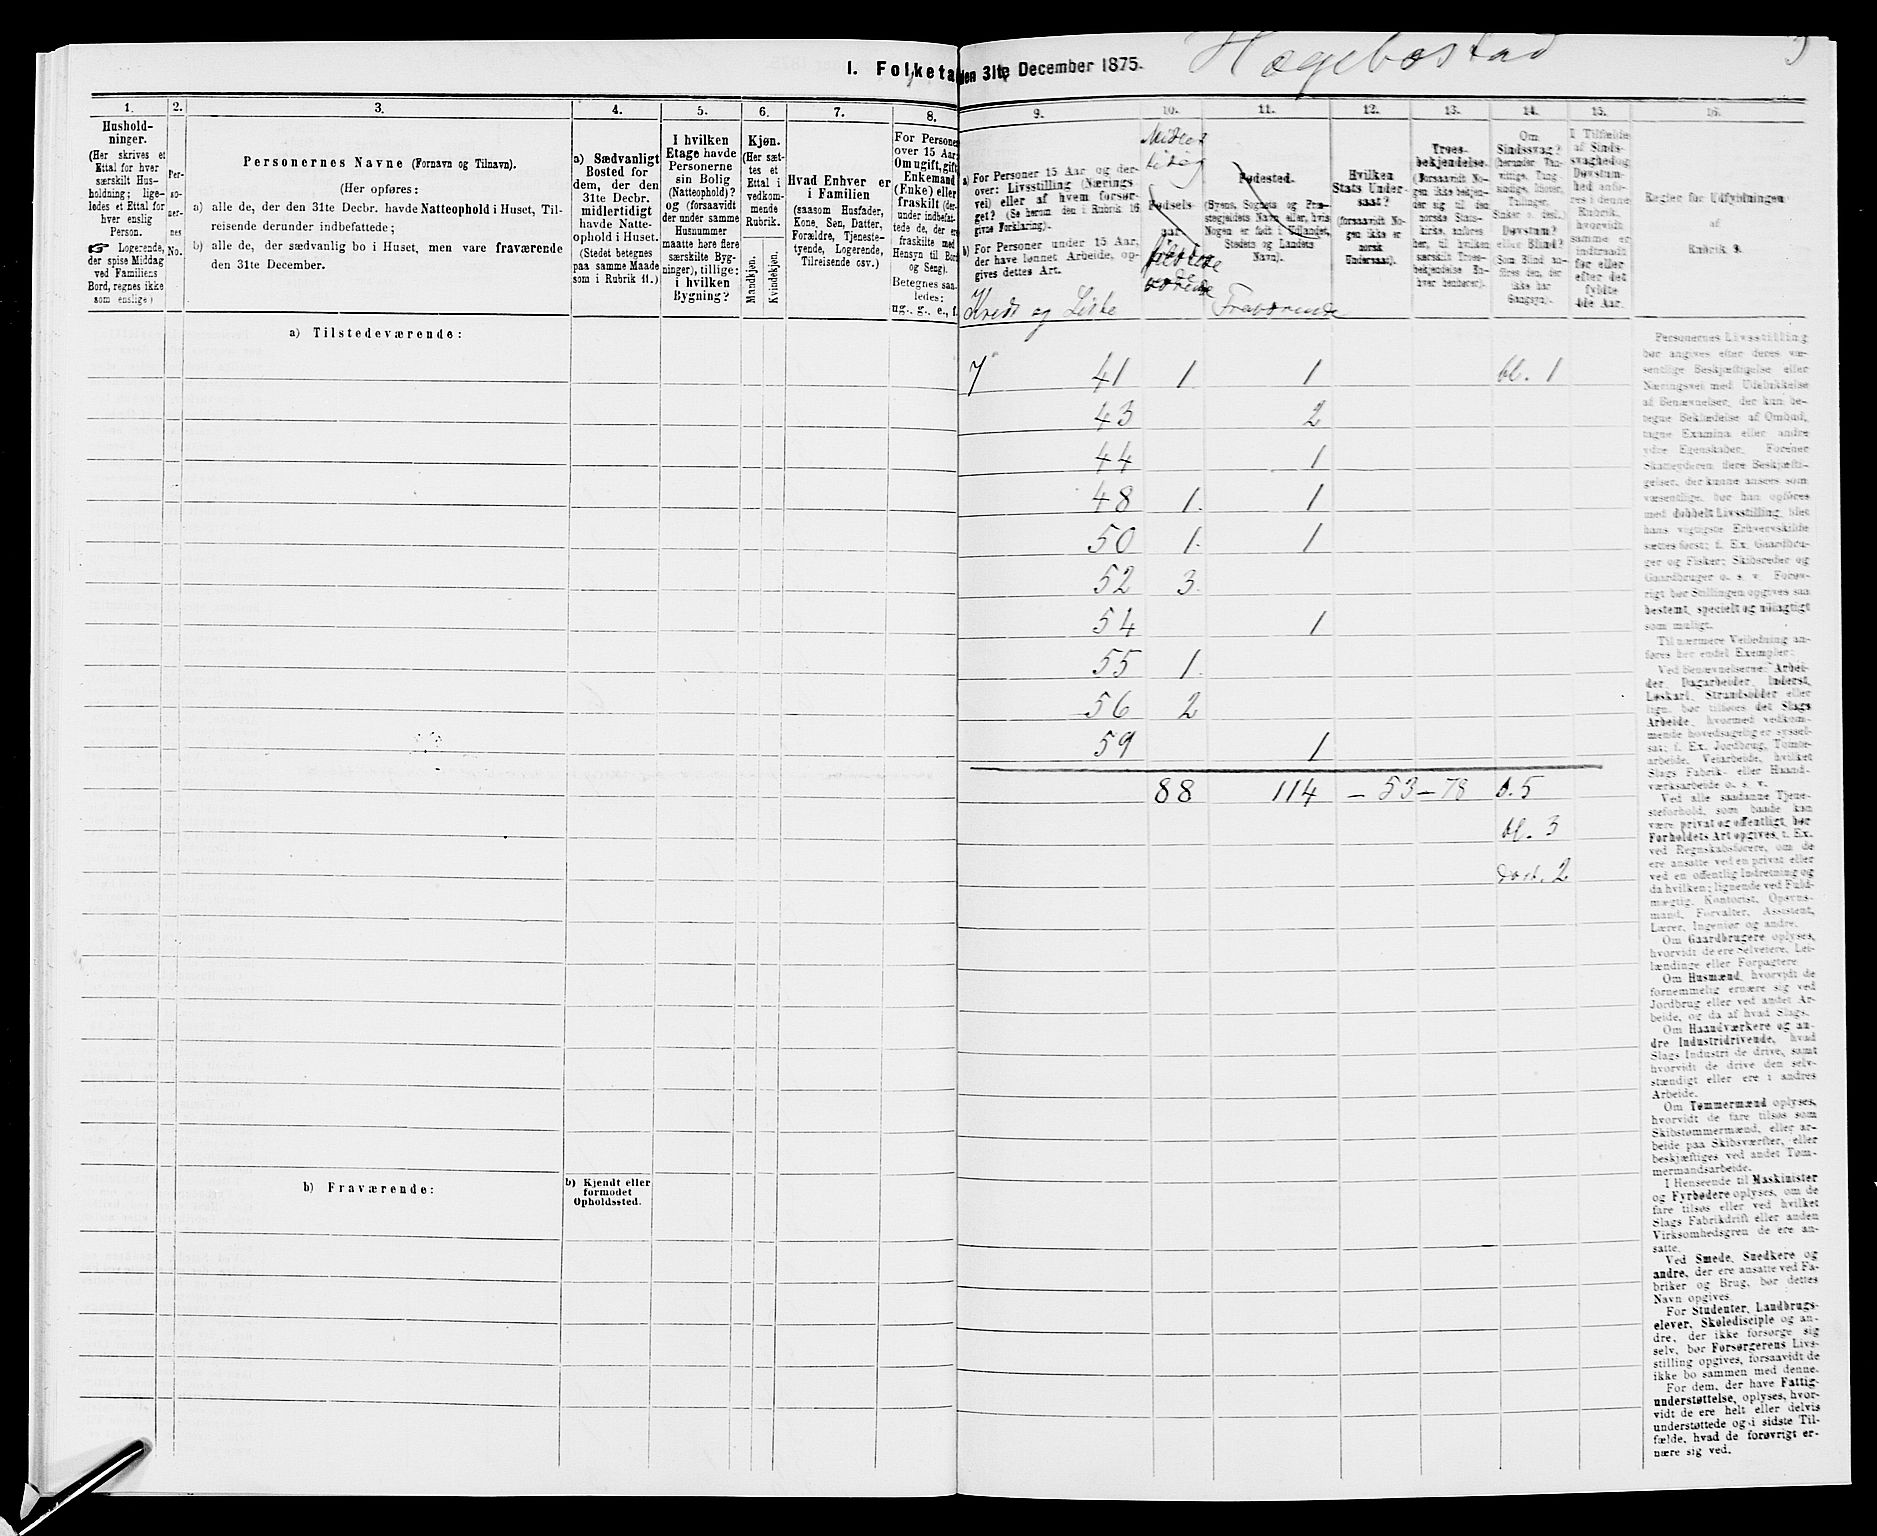 I. Folketal den 31te December 1875.
Hægebostad
1.
Hushold-
ninger.
(Her skrives et
Ettal for hver
særskilt Hus-
holdning; lige-
ledes et Ettal for
hver enslig
Person.
☞ Logerende,
der spise Middag
ved Familiens
Bord, regnes ikke
som enslige)
2.
Per-
so-
ner-
nes
No.
3.
Personernes Navne (Fornavn og Tilnavn).
(Her opføres:
a) alle de, der den 31te Decbr. havde Natteophold i Huset, Til-
reisende derunder indbefattede;
b) alle de, der sædvanlig bo i Huset, men vare fraværende
den 31te December.
4.
a) Sædvanligt
Bosted for
dem, der den
31te Decbr.
midlertidigt
havde Natte-
ophold i Huset.
(Stedet betegnes
paa samme Maade
som i Rubrik 11.)
5.
I hvilken
Etage havde
Personerne
sin Bolig
(Natteophold)?
og (forsaavidt
der under samme
Husnummer
maatte høre flere
særskilte Byg-
ninger), tillige:
i hvilken
Bygning?
6.
Kjøn.
(Her sæt-
tes et
Ettal i
vedkom-
mende
Rubrik.
Mandkjøn.
Kvindekjøn.
7.
Hvad Enhver er
i Familien
(saasom Husfader,
Kone, Søn, Datter,
Forældre, Tjeneste-
tyende, Logerende,
Tilreisende osv.)
8.
For Personer
over 15 Aar:
Om ugift, gift,
Enkemand
(Enke) eller
fraskilt (der-
under indbefat-
tede de, der ere
fraskilte med
Hensyn til Bord
og Seng).
Betegnes saa-
ledes:
ug., g., e., f.
9.
a) For Personer 15 Aar og der-
over: Livsstilling (Nærings-
vei) eller af hvem forsør-
get? (Se herom den i Rubrik 16
givne Forklaring).
b) For Personer under 15 Aar,
der have lønnet Arbeide, op-
gives dettes Art.
Kreds og Liste
10.
Midler
tidig
Fødsels-
aar.
tilstede
værende
11.
Fødested.
(Byens, Sognets og Præ-
stegjeldets Navn eller, hvis
Nogen er født i Udlandet,
Stedets og Landets
Navn).
Fraværende
12.
Hvilken
Stats Under-
saat?
(forsaavidt No-
gen ikke er
norsk
Undersaat).
13.
Troes-
bekjendelse.
(Forsaavidt No-
gen ikke bekjen-
der sig til den
norske Stats-
kirke, anføres
her, til hvilken
særskilt Troes-
bekjendelse En-
hver henhører).
14.
Om
Sindssvag?
(herunder Van-
vittige, Tung-
sindige, Idioter,
Tullinger,
Sinker o. desl.)
Døvstum?
eller Blind?
(Som Blind an-
føres den, der
ikke har
Gangsyn).
15.
I Tilfælde
af Sinds-
svaghed og
Døvstum-
hed anfø-
res i denne
Rubrik,
hvorvidt
samme er
indtraadt
før eller
efter det
fyldte
4de Aar.
16.
Regler for Udfyldningen
af
Rubrik 9.
a) Tilstedeværende:
7 41 1. 1 bl. 1
43 2
44 1
48 1. 1
50 1. 1
52 3.
54 1
55 1.
56 2
59 1
88 114 – 53 – 78 s. 5
bl. 3
døvst. 2
b) Fraværende:
b) Kjendt eller
formodet
Opholdssted.
Personernes Livsstilling
bør angives efter deres væ-
sentlige Beskjæftigelse eller
Næringsvei med Udelukkelse
af Benævnelser, der kun be-
tegne Beklædelse af Ombud,
tagne Examina eller andre
ydre Egenskaber. Forener
Skatteyderen flere Beskjæfti-
gelser, der kunne ansees som
væsentlige, bør han opføres
med dobbelt Livsstilling, idet
hans vigtigste Erhvervskilde
sættes først; f. Ex. Gaardbru-
ger og Fisker; Skibsreder og
Gaardbruger o. s. v. Forøv-
rigt bør Stillingen opgives saa
bestemt, specielt og nøiagtigt
som muligt.
Til nærmere Veiledning an-
føres her endel Exempler:
Ved Benævnelserne: Arbei-
der, Dagarbeider, Inderst,
Løskarl, Strandsidder eller
lign. bør tilføies det Slags
Arbeide, hvormed vedkom-
mende hovedsagelig er syssel-
sat; f. Ex. Jordbrug, Tomte-
arbeide, Veiarbeide, hvilket
Slags Fabrik- eller Haand-
værksarbeide o. s. v.
Ved alle saadanne Tjene-
steforhold, som baade kan
være privat og offentligt, bør
Forholdets Art opgives, f. Ex.
ved Regnskabsførere, om de
ere ansatte ved en privat eller
ved en offentlig Indretning og
da hvilken; lignende ved Fuld-
mægtig, Kontorist, Opsyns-
mand, Forvalter, Assistent,
Lærer, Ingeniør og andre.
Om Gaardbrugere oplyses,
hvorvidt de ere Selveiere, Lei-
lændinge eller Forpagtere
Om Husmænd, hvorvidt de
fornemmelig ernære sig ved
Jordbrug eller ved andet Ar-
beide, og da af hvad Slags.
Om Haandværkere og an-
dre Industridrivende, hvad
Slags Industri de drive, samt
hvorvidt de drive den selv-
stændigt eller ere i andres
Arbeide.
Om Tømmermænd oplyses,
hvorvidt de fare tilsøs som
Skibstømmermænd, eller ar-
beide paa Skibsværfter, eller
beskjæftiges ved andet Tøm-
mermandsarbeide.
I Henseende til Maskinister
og Fyrbødere oplyses, om de
fare tilsøs eller ved hvilket
Slags Fabrikdrift eller anden
Virksomhedsgren de ere an-
satte.
Ved Smede, Snedkere og
andre, der ere ansatte ved Fa-
briker og Brug, bør dettes
Navn opgives.
For Studenter, Landbrugs-
elever, Skoledisciple og an-
dre, der ikke forsørge sig
selv, bør Forsørgerens Livs-
stilling opgives, forsaavidt de
ikke bo sammen med denne.
For dem, der have Fattig-
understøttelse, oplyses, hvor-
vidt de ere helt eller delvis
understøttede og i sidste Til-
fælde, hvad de forøvrigt er-
nære sig ved.